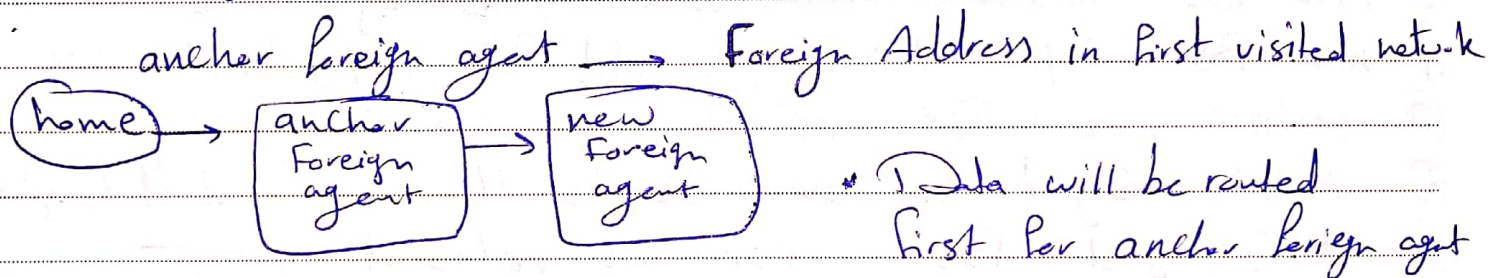 anchor foreign agent → Foreign Address in first visited netw-k
home → anchor Foreign agent → new Foreign agent
• Data will be routed
first for anchor foriegn agent